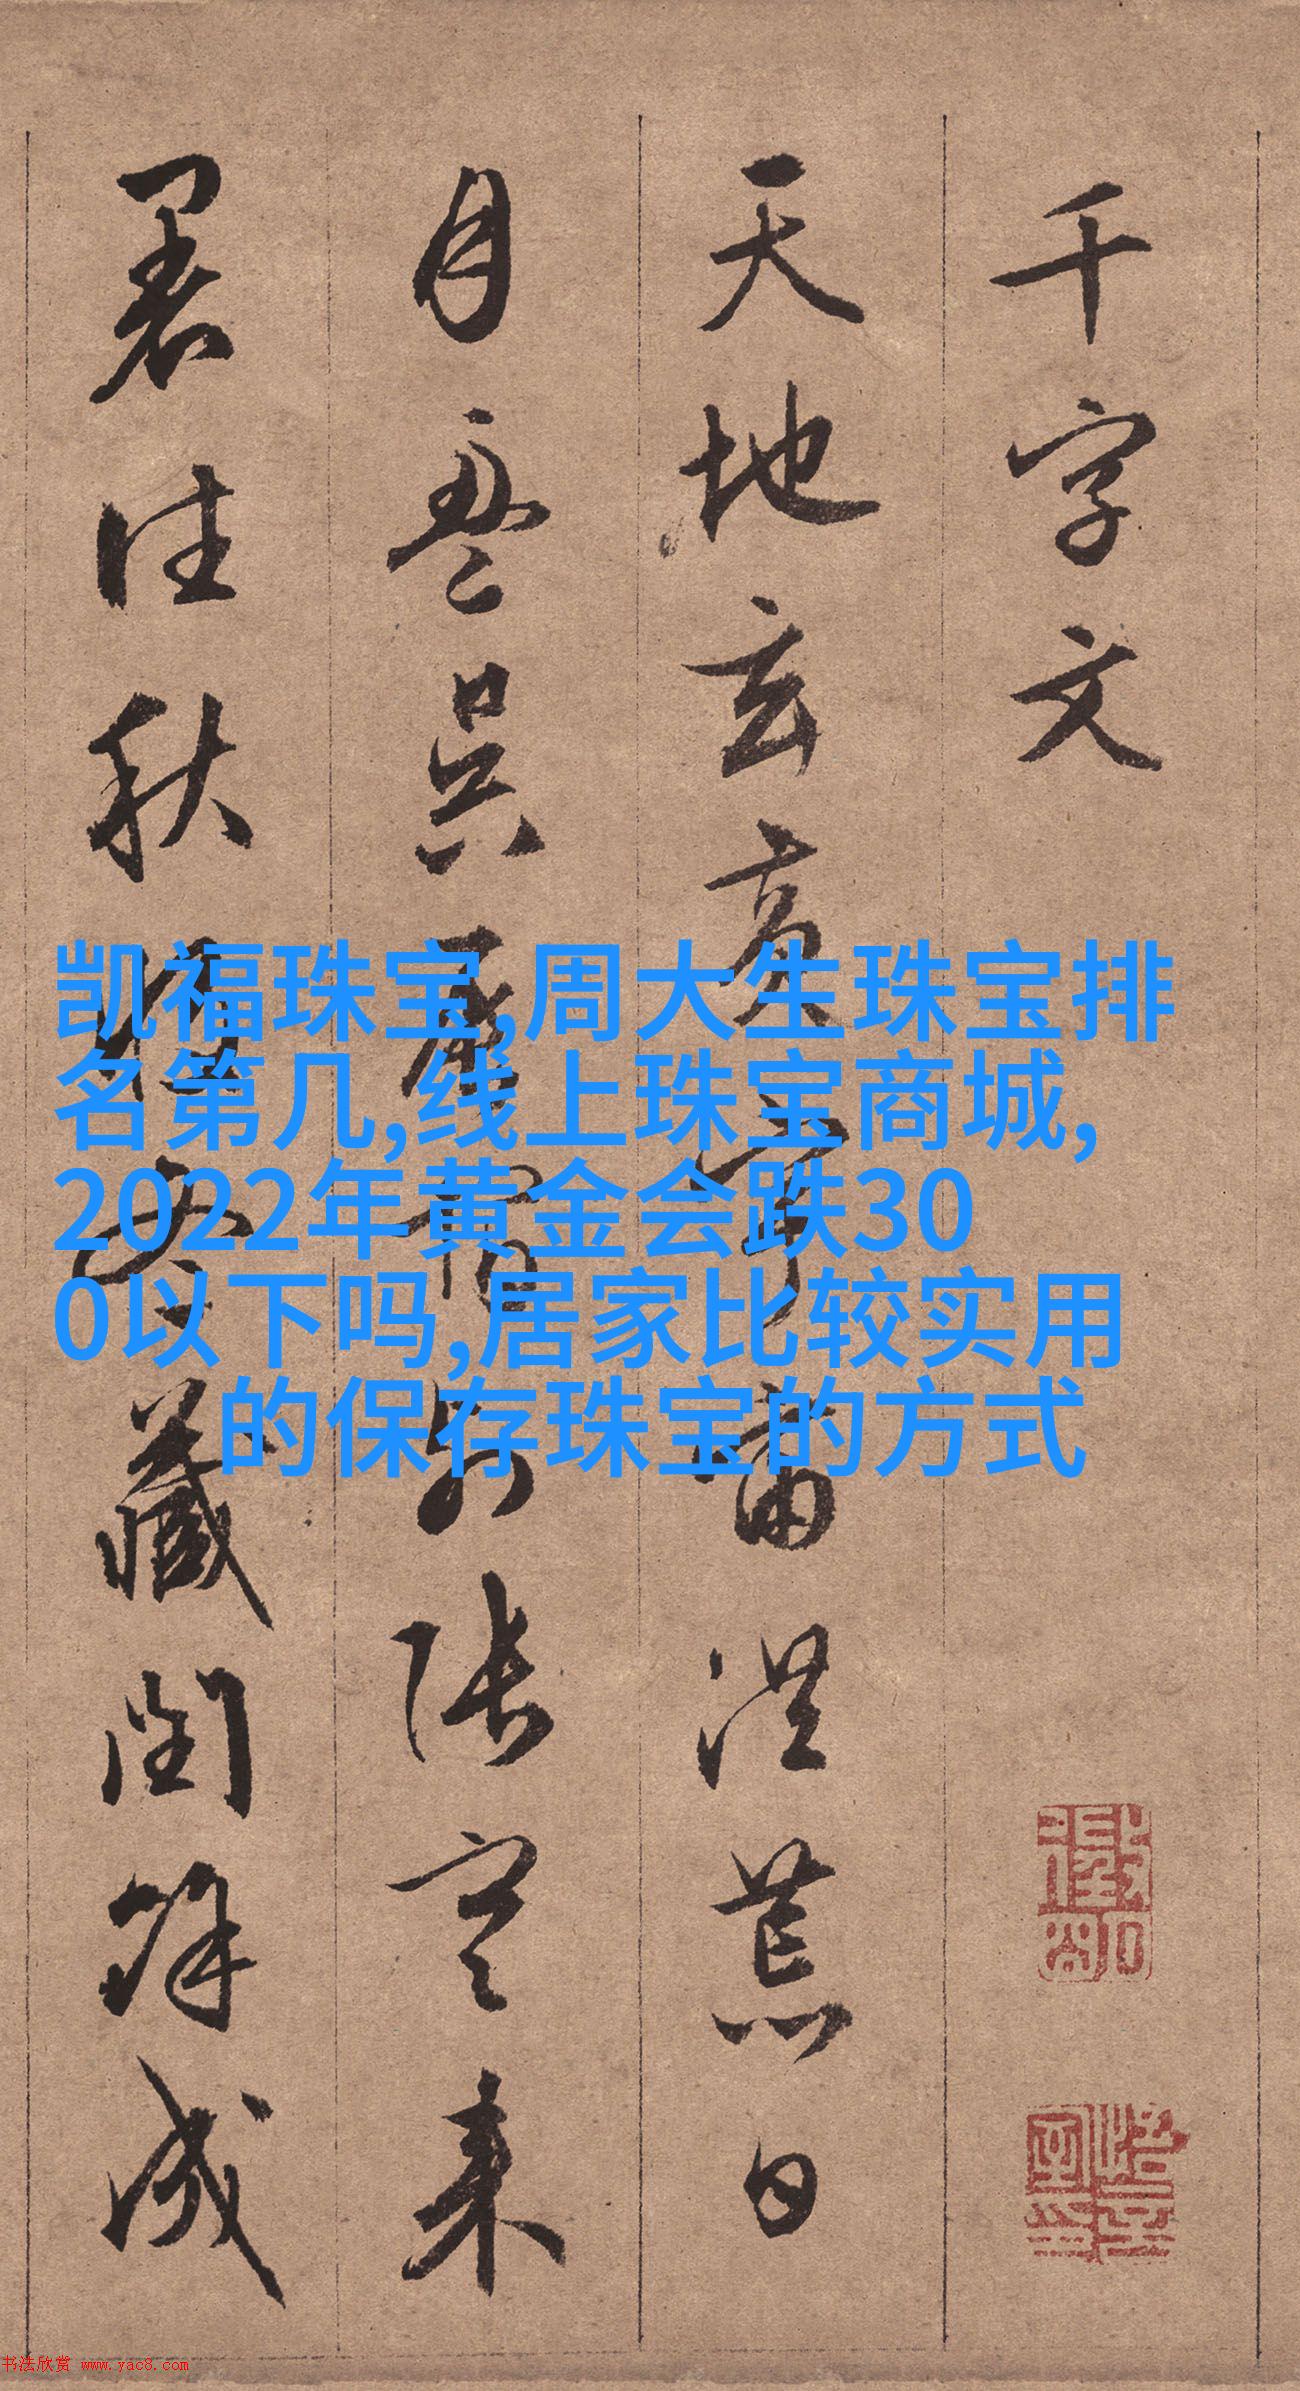 千字文
天地玄黄宇宙洪荒日
月盈昃辰宿列张寒来
暑往秋收冬藏闰馀成
凯福珠宝,周大生珠宝排
名第几,线上珠宝商城,
2022年黄金会跌30
0以下吗,居家比较实用
的保存珠宝的方式
书法欣赏 www.yac8.com